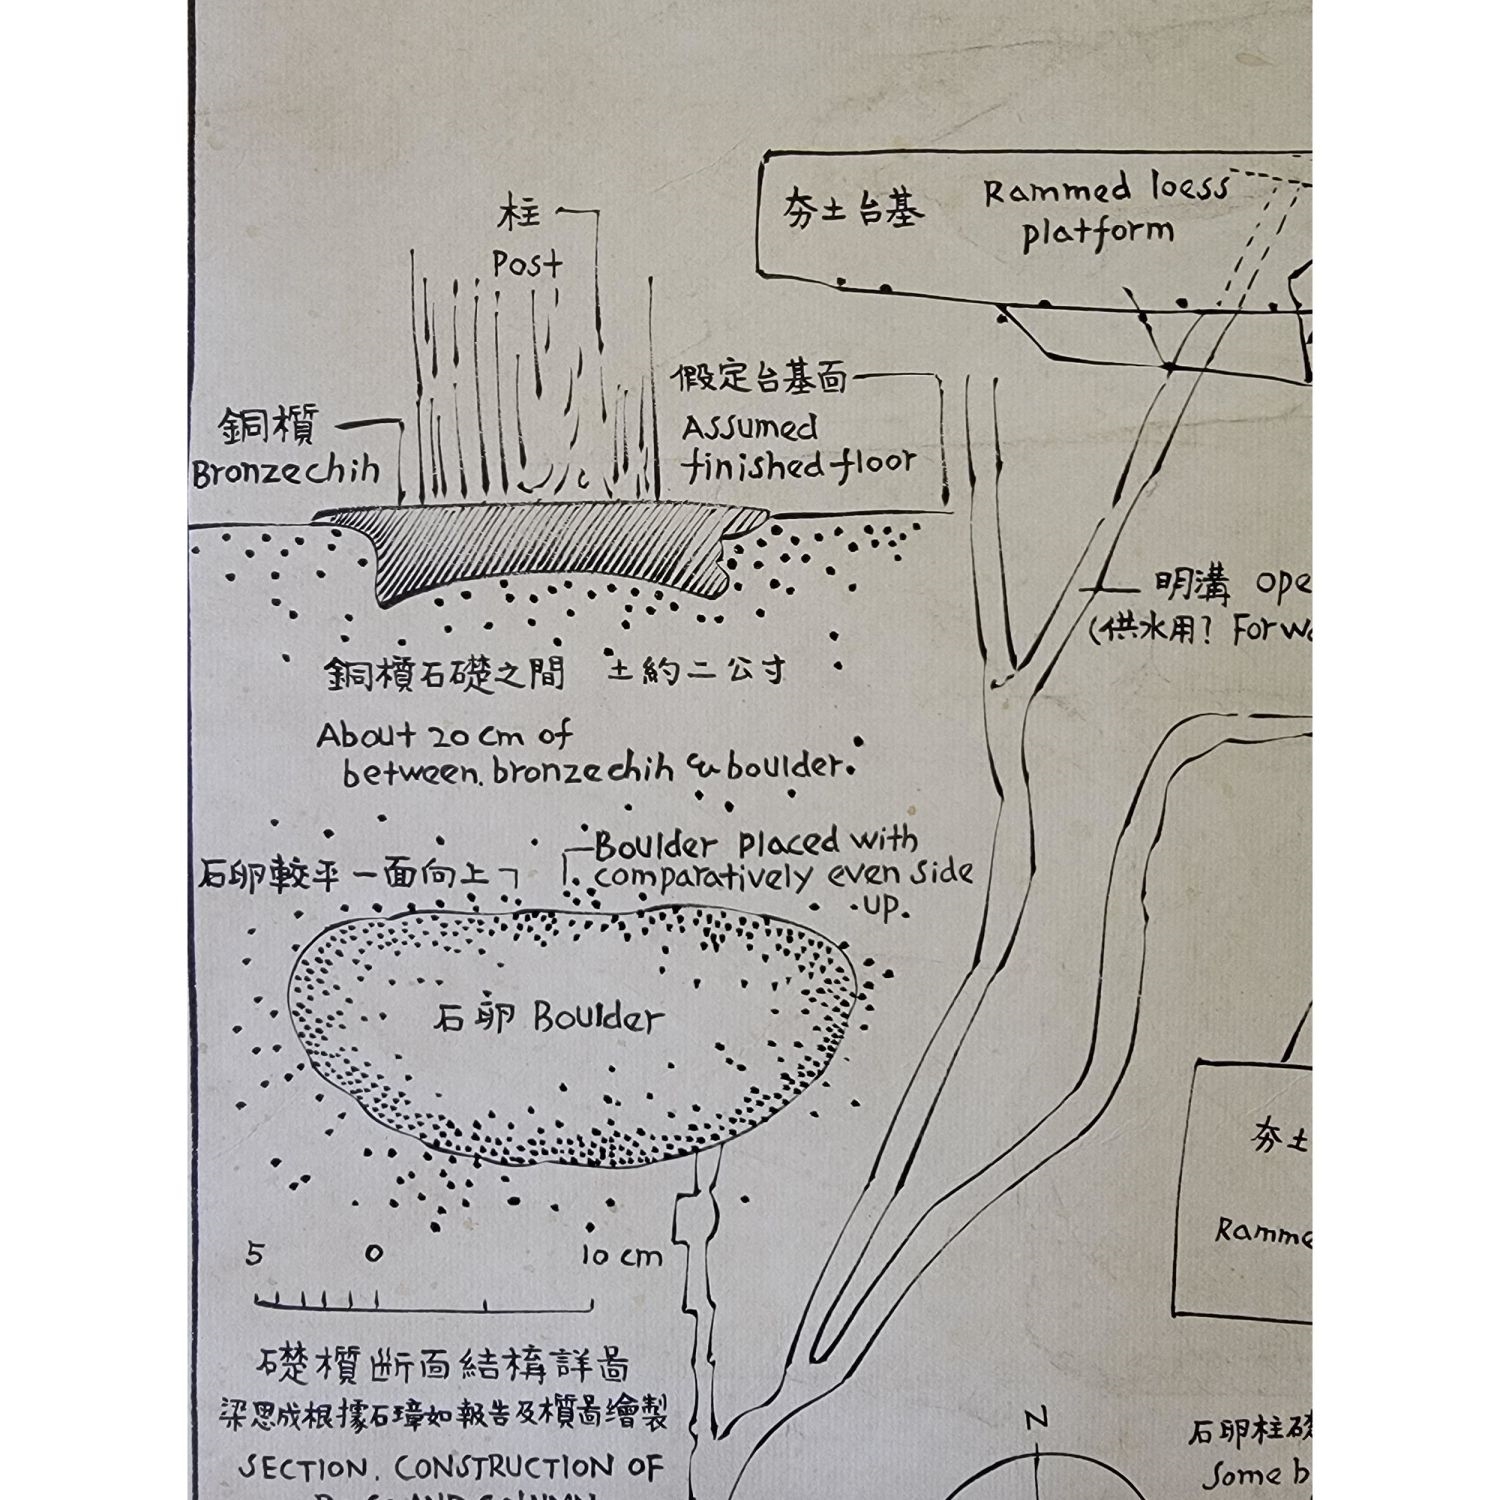 柱
Post
夯土台基
Rammed loess
platform
假定台基面
Assumed
finished floor
銅櫍
Bronze chih
明溝 ope
(供水用? For wa
銅櫍石礎之間 土約二公寸
About 20 cm of
between. bronze chih & boulder.
石卵較平一面向上
Boulder placed with
comparatively even side
up.
石卵 Boulder
夯土
Ramme
5 0 10 cm
礎櫍断面結構詳圖
梁思成根據石璋如報告及櫍圖繪製
SECTION. CONSTRUCTION OF
N
石卵柱礎
Some b